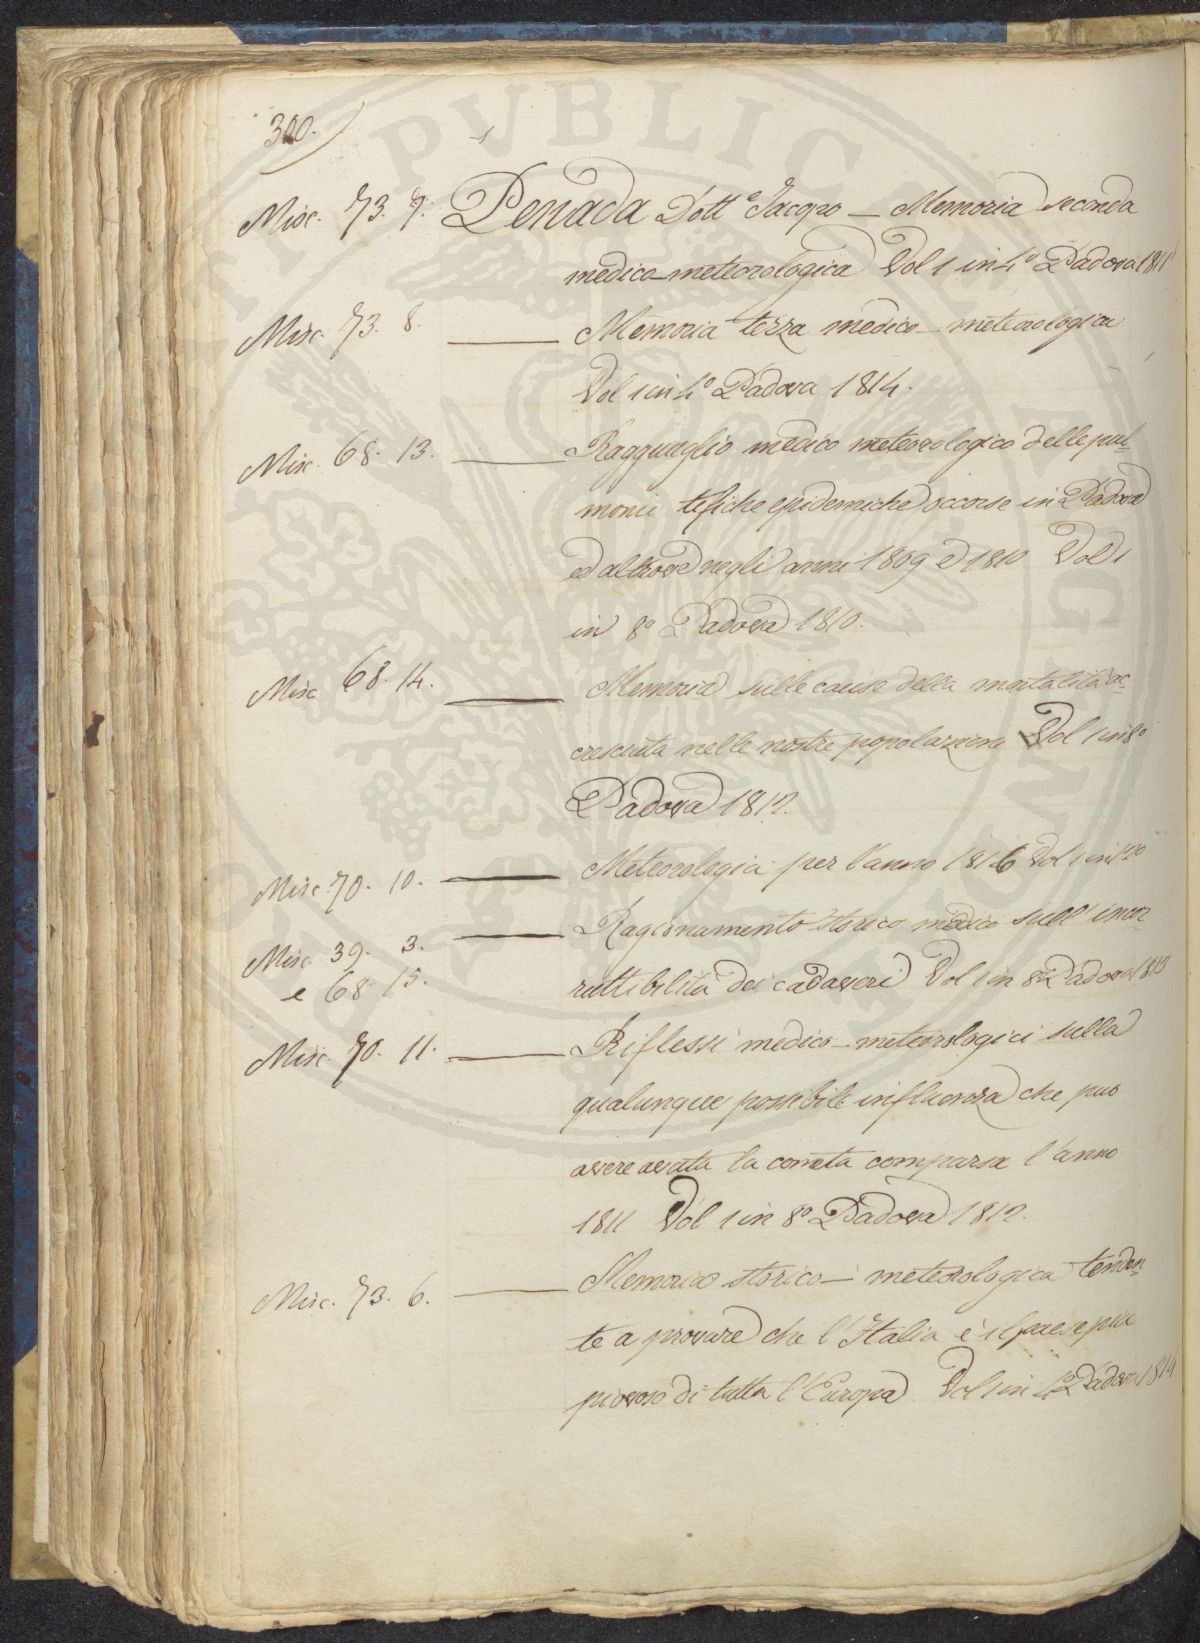 300.
Misc. 73. 7. Penada Dott.e Jacopo — Memoria seconda
medico-meteorologica Vol 1 in 4o Padova 1811
Misc. 73. 8. — Memoria terza medico-meteorologica
Vol 1 in 4o Padova 1814.
Misc. 68. 13. — Ragguaglio medico meteorologico delle pul-
monie tifiche epidemiche occorse in Padova
ed altrove negli anni 1809 e 1810 Vol 1
in 8o Padova 1810.
Misc 68. 14. — Memoria sulle cause della mortalità ac-
cresciuta nelle nostre popolazioni Vol 1 in 8o
Padova 1812.
Misc. 70. 10. — Meteorologia per l'anno 1816 Vol 1 in 12o
Misc. 39. 3. — Ragionamento storico medico sull' incor-
e 68. 15. ruttibilità dei cadaveri Vol 1 in 8o Padova 1813
Misc. 70. 11. — Riflessi medico-meteorologici sulla
qualunque possibile influenza che può
avere avuta la cometa comparsa l'anno
1811 Vol 1 in 8o Padova 1812.
Misc. 73. 6. — Memoria storico-meteorologica tenden-
te a provare che l'Italia è il paese più
piovoso di tutta l'Europa Vol 1 in 4o Padova 1814
PVBLIC